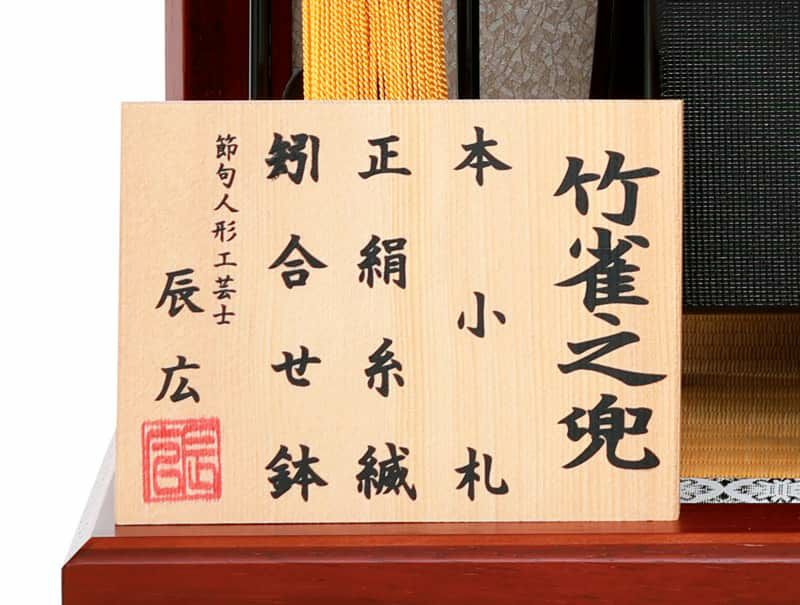 竹雀之兜
本小札
正絹糸縅
矧合せ鉢
節句人形工芸士
辰広
辰広